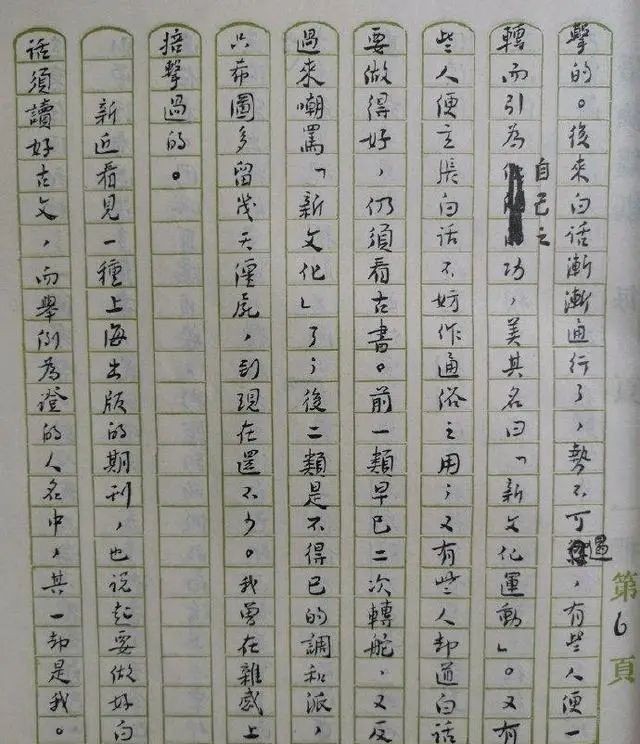 擊的。後來白话漸漸通行了，勢不可遏，有些人便一
轉而引為自己之功，美其名曰「新文化運動」。又有
些人便主張白话不妨作通俗之用；又有些人却道白话
要做得好，仍須看古書。前一類早已二次轉舵，又反
過來嘲罵「新文化」了；後二類是不得已的調和派，
只希圖多留幾天僵屍，到現在還不少。我曾在雜感上
掊擊過的。
新近看見一種上海出版的期刊，也说起要做好白
话須讀好古文，而舉例為證的人名中，其一却是我。
第6頁